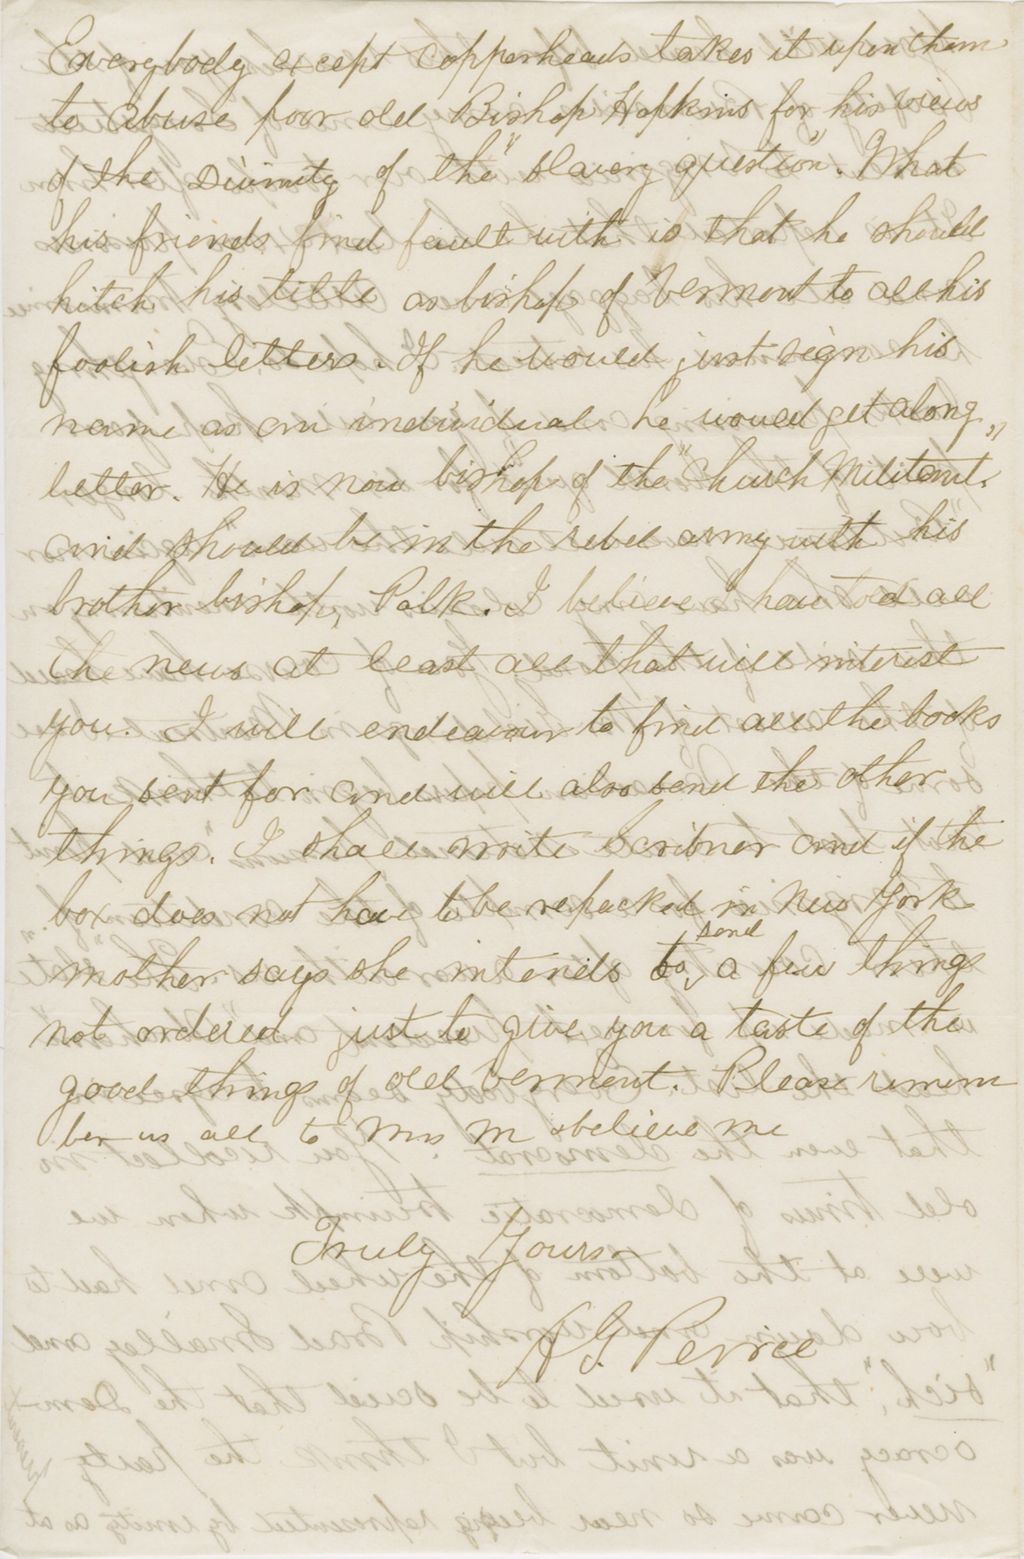 Everybody except copperheads takes it upon them
to abuse poor old Bishop Hopkins for his views
of the Divinity of the "slavery question". What
his friends find fault with is that he should
hitch his title as bishop of Vermont to all his
foolish letters. If he would just sign his
name as an individual he would get along
better. He is now bishop of the "Church Militant"
and should be in the rebel army with his
brother bishop, Polk. I believe I have told all
the news at least all that will interest
you. I will endeavour to find all the books
you sent for and will also send the other
things. I shall write Scribner and if the
box does not have to be repacked in New York
mother says she intends to send a few things
not ordered just to give you a taste of the
good things of old Vermont. Please remem
ber us all to Mrs M & believe me
Truly Yours
G. Peirce